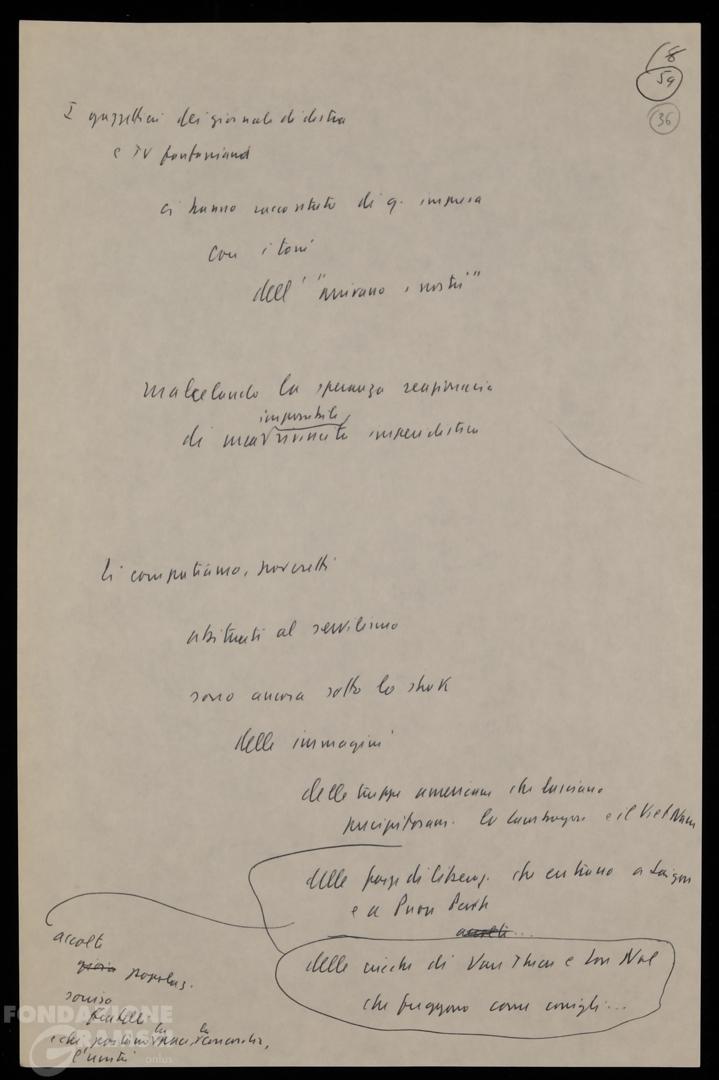 8
59
36
I gazzettieri dei giornali di destra
e TV
ci hanno raccontato di q. impresa
con i toni
dell'"arrivano i nostri"
malcelando la speranza
impossibile
di rivincita imperialistica
li compatiamo, poveretti
abituati al servilismo
sono ancora sotto lo shok
delle immagini
delle truppe americane che lasciano
precipitosam. la Cambogia e il Viet Nam
delle forze di liberaz. che entrano a Saigon
e a Pnon Penh
accolti...
delle cricche di Van Thieu e Lon Nol
che fuggono come conigli...
accolti
popolaz.
sorriso
fratelli
che portano la pace, la concordia,
l'unità
FONDAZIONE
GRAMSCI
onlus